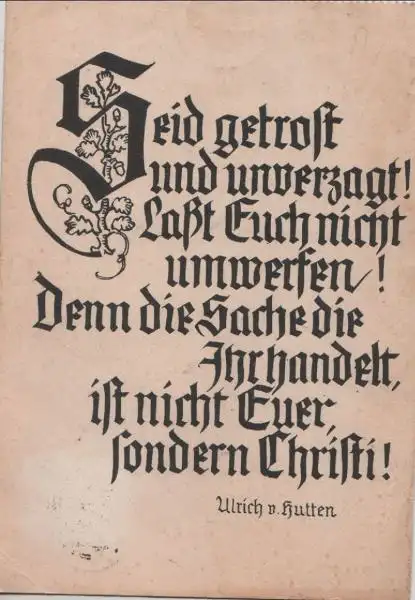 Seid getrost
und unverzagt!
Laßt Euch nicht
umwerfen!
Denn die Sache die
Ihr handelt,
ist nicht Euer,
sondern Christi!
Ulrich v. Hutten